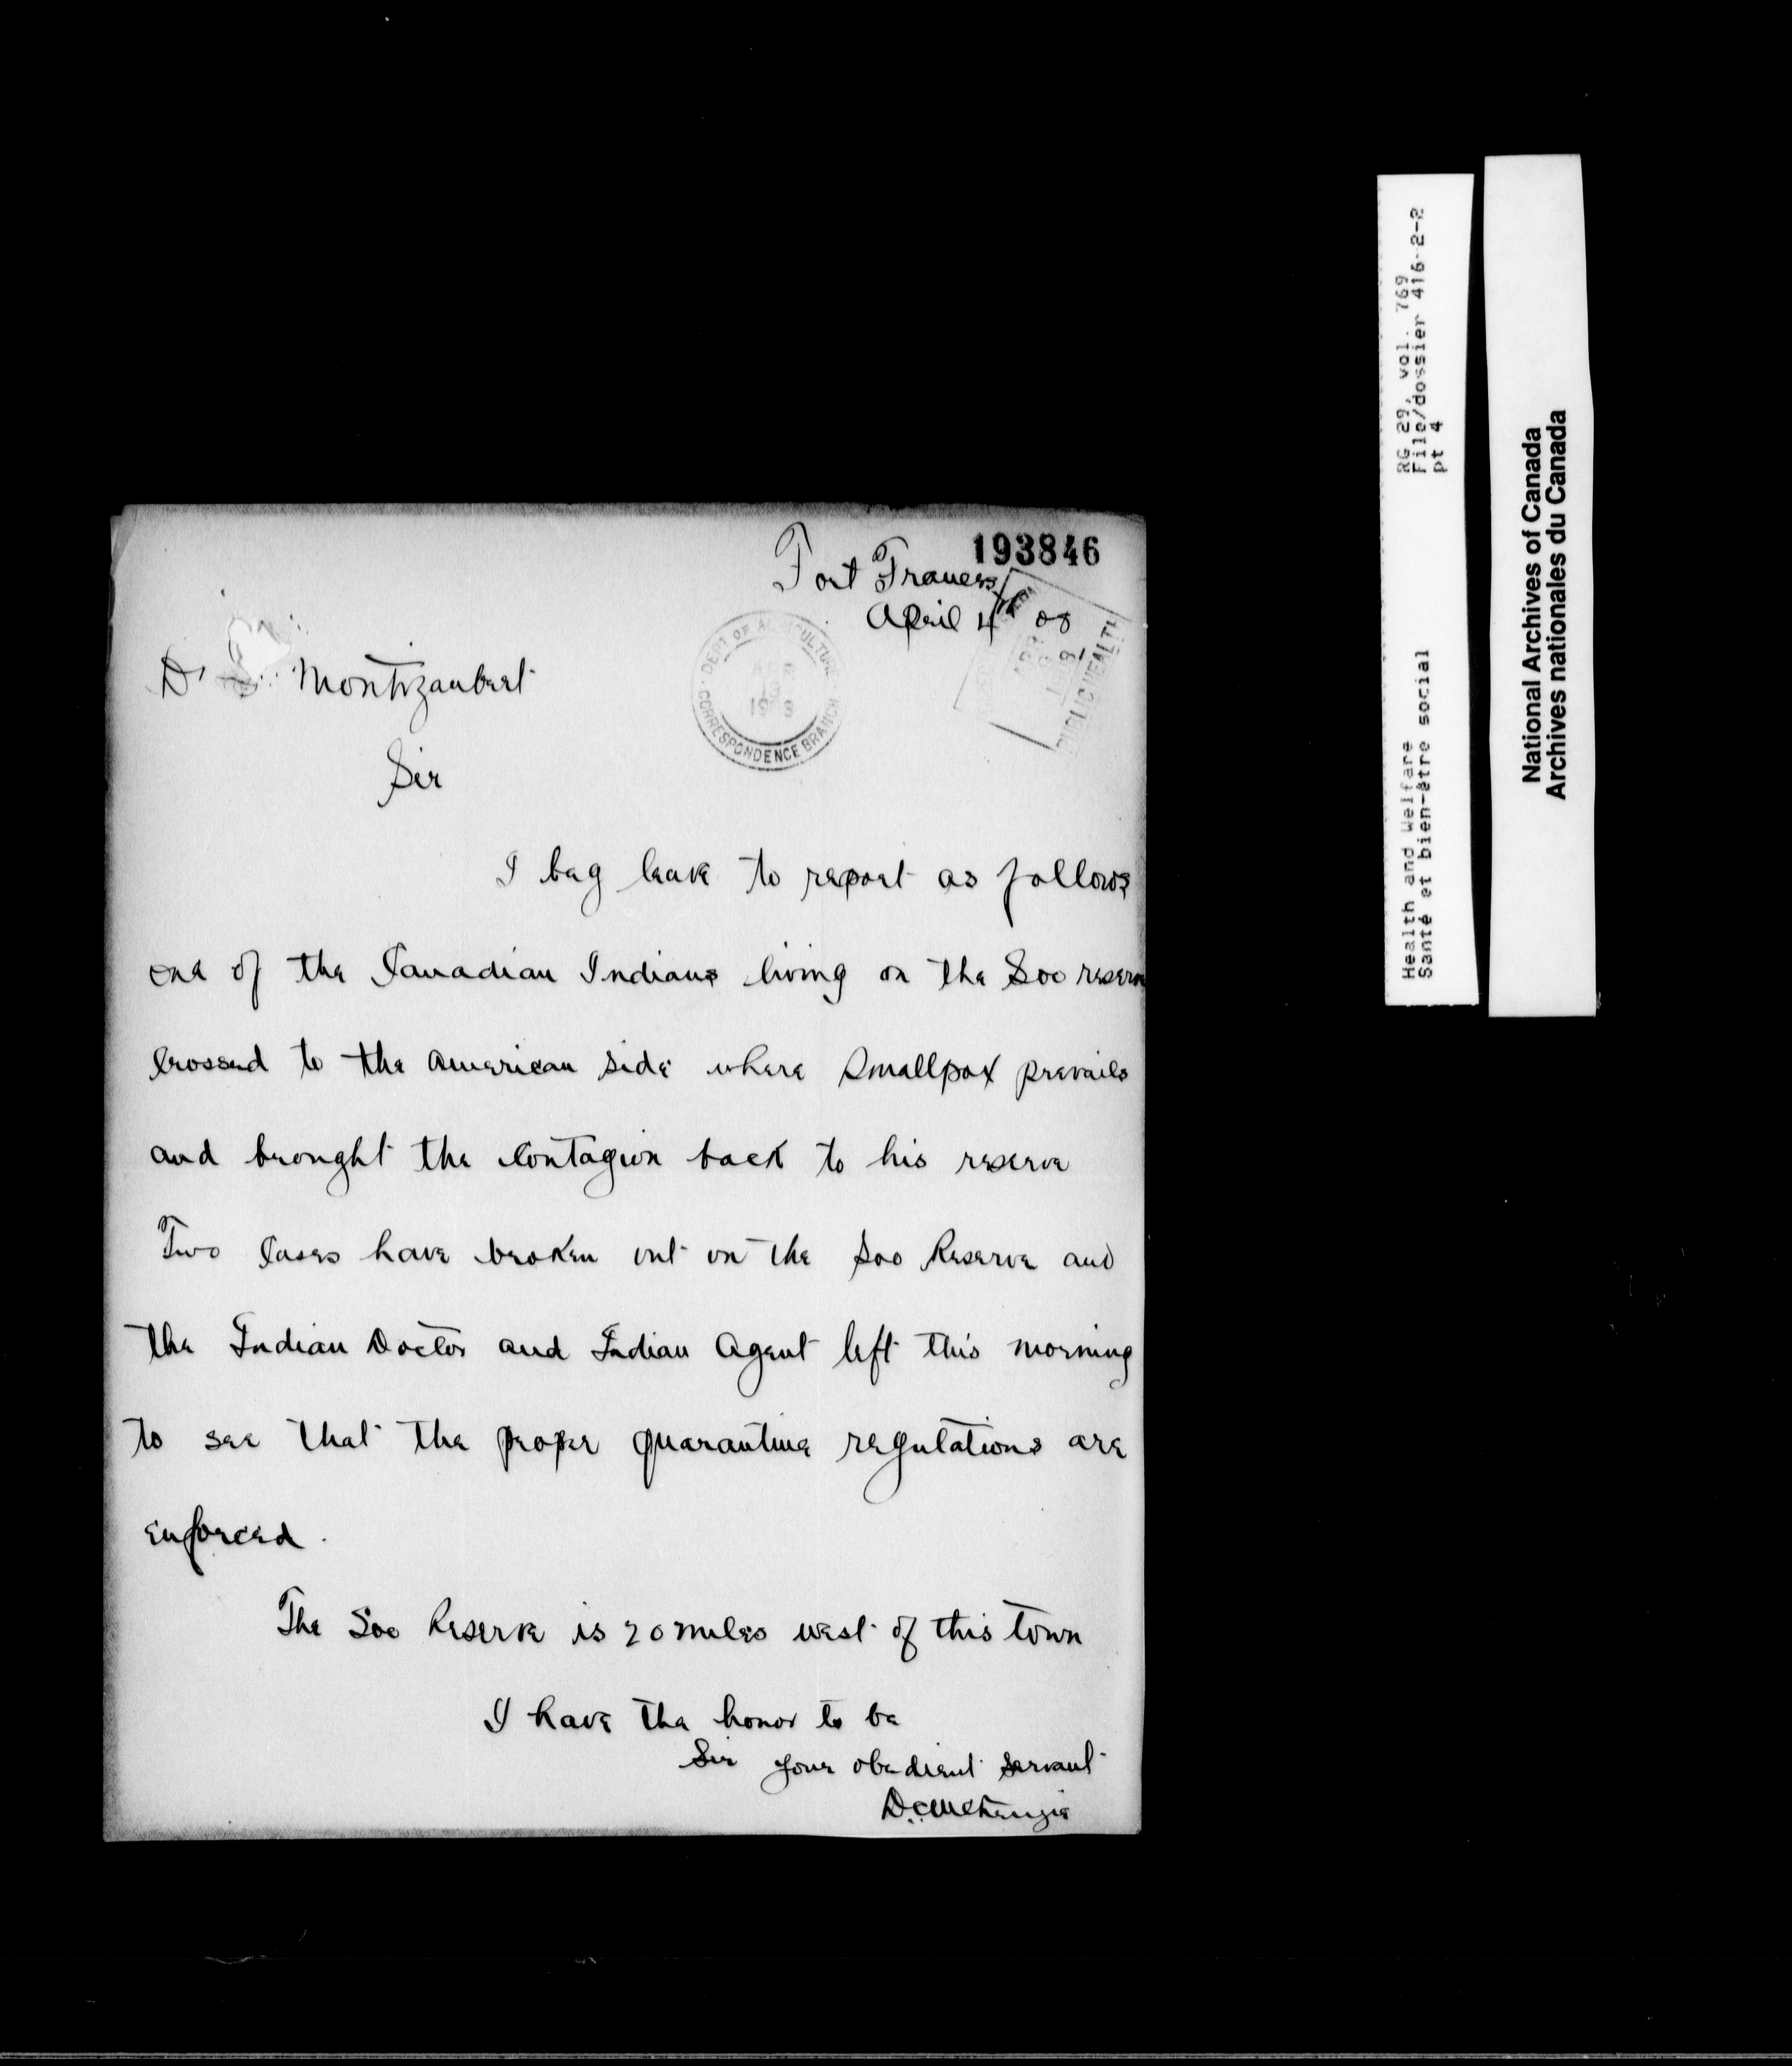 193846
Fort Frances
April 4th 08
DEPT OF AGRICULTURE
CORRESPONDENCE BRANCH
PUBLIC HEALTH
Dr Montizambert
Sir
I beg leave to report as follows
one of the Canadian Indians living on the Soo reserve
crossed to the American side where Smallpox prevails
and brought the contagion back to his reserve
Two cases have broken out on the Soo Reserve and
the Indian Doctor and Indian Agent left this morning
to see that the proper quarantine regulations are
enforced.
The Soo Reserve is 20 miles west of this town
I have the honor to be
Sir your obedient servant
D C McKenzie
RG 29, vol. 769
File/dossier 416-2-2
pt 4
Health and Welfare
Santé et bien-être social
National Archives of Canada
Archives nationales du Canada